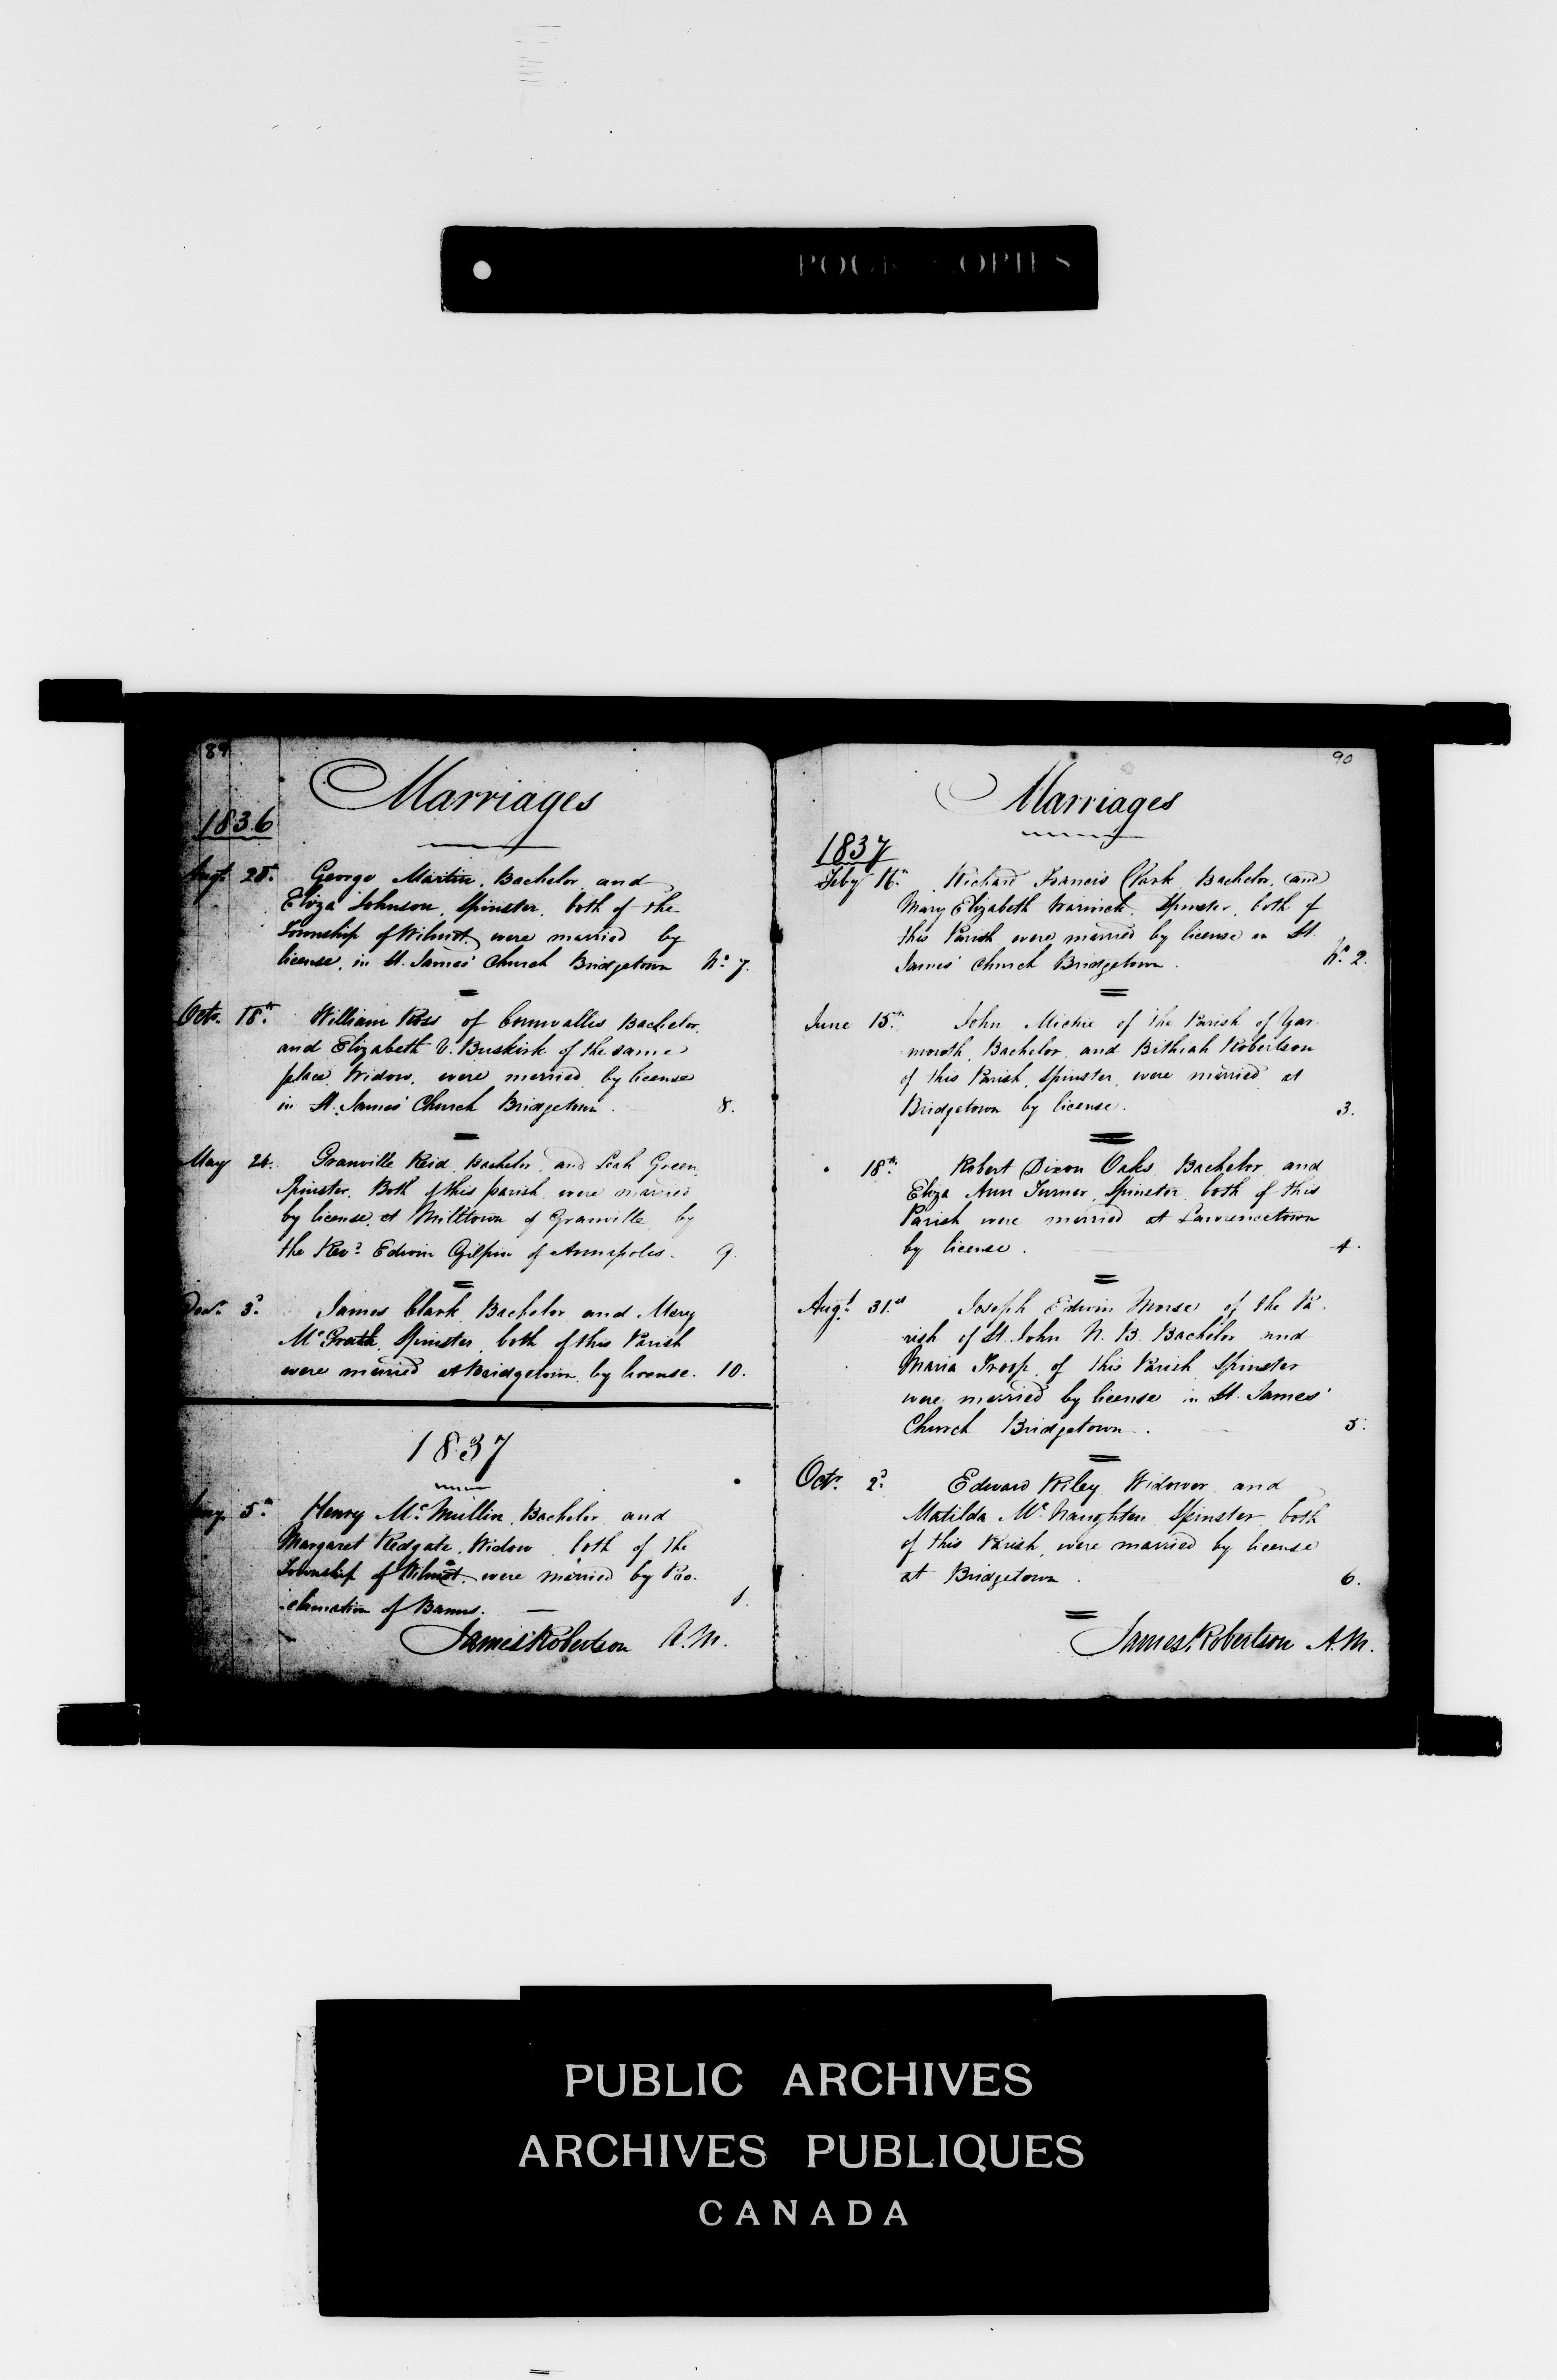 89
Marriages
1836
Augt. 28th. George Martin, Bachelor and
Eliza Johnson, Spinster, both of the
Township of Wilmot, were married by
license, in St. James' Church Bridgetown No. 7.
Octr. 18th. William Ross of Cornwallis Bachelor,
and Elizabeth V. Buskirk of the same
place, Widow, were married by license
in St. James' Church Bridgetown. 8.
May 24. Granville Reid, Bachelor, and Leah Green,
Spinster, Both of this parish, were married
by license, at Milltown of Granville, by
the Revd. Edwin Gilpin of Annapolis. 9.
Decr. 3d. James Clark, Bachelor and Mary
McGrath, Spinster, both of this Parish
were married at Bridgetown, by license. 10.
1837
5th. Henry McMullin, Bachelor and
Margaret Redgate, Widow, both of the
Township of Wilmot, were married by Pro-
clamation of Banns. 1.
James Robertson A.M.
90
Marriages
1837
Feby 16th. Richard Francis Clark, Bachelor, and
Mary Elizabeth Warwick, Spinster, both of
this Parish were married by license in St.
James' Church Bridgetown. No. 2.
June 15th. John Michie of the Parish of Yar-
mouth, Bachelor, and Bithiah Robertson
of this Parish, Spinster, were married at
Bridgetown by license. 3.
" 18th. Robert Dixon Oaks, Bachelor, and
Eliza Ann Turner, Spinster, both of this
Parish were married at Lawrencetown
by license. 4.
Augt. 31st Joseph Edwin Morse of the Pa-
rish of St. John N. B. Bachelor and
Maria Troop, of this Parish, Spinster
were married by license in St. James'
Church Bridgetown. 5.
Octr. 2d. Edward Riley, Widower, and
Matilda McNaughten, Spinster, both
of this Parish, were married by license
at Bridgetown. 6.
James Robertson A.M.
PUBLIC ARCHIVES
ARCHIVES PUBLIQUES
CANADA